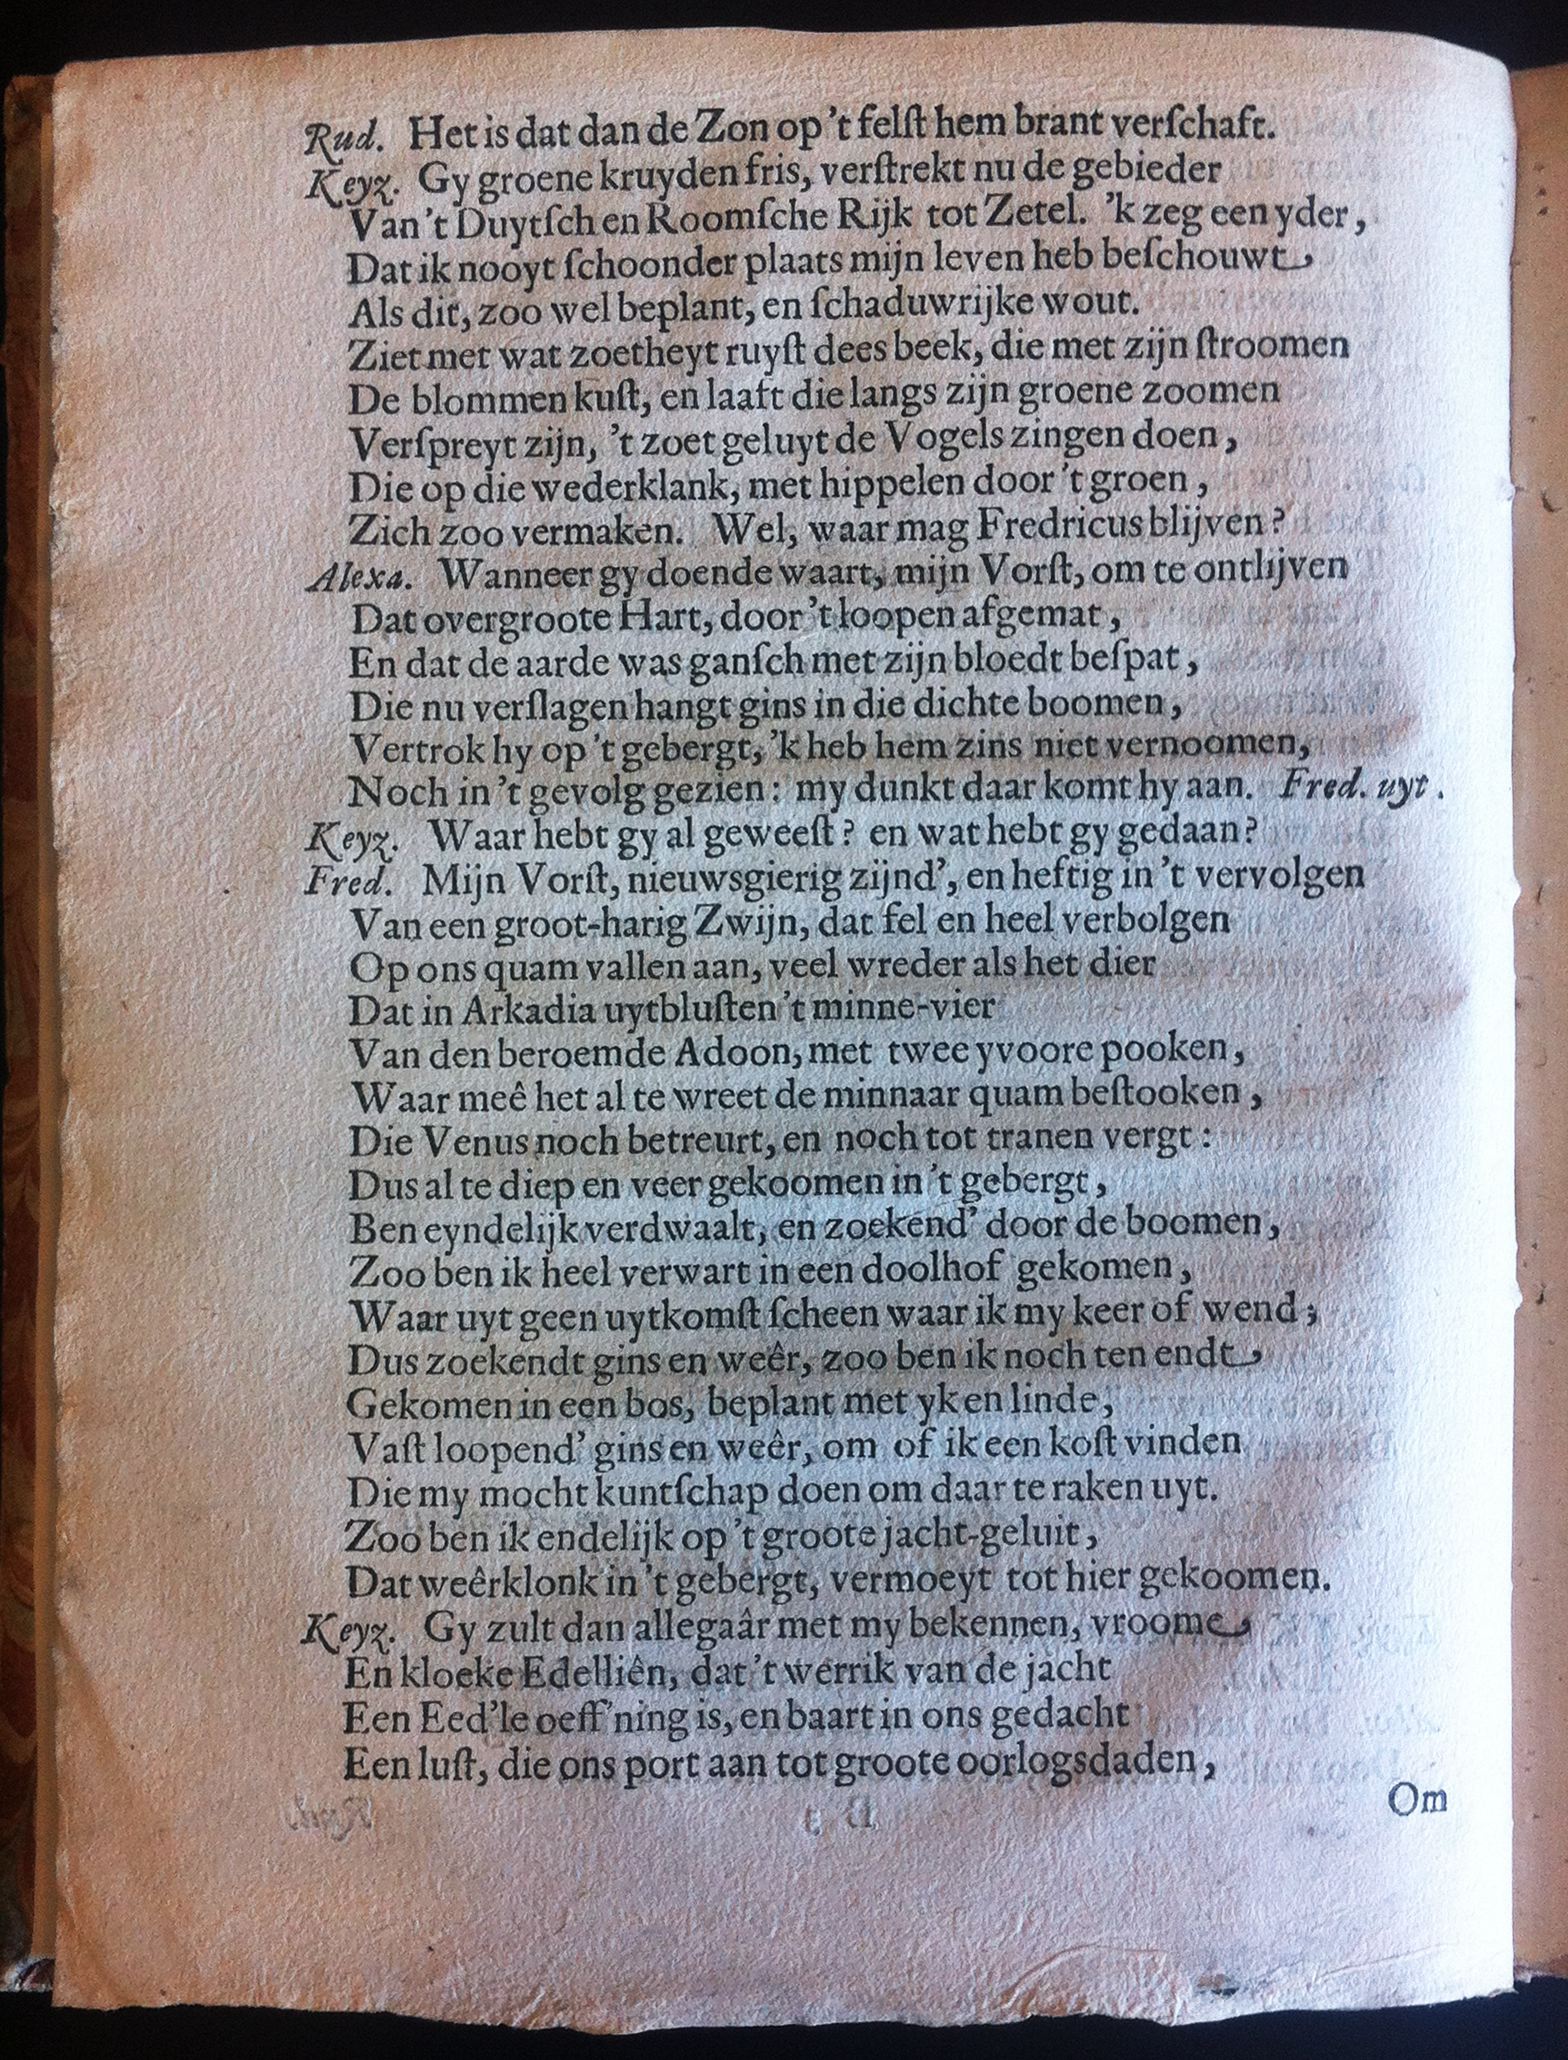 Rud. Het is dat dan de Zon op 't felſt hem brant verſchaft.
Keyz. Gy groene kruyden fris, verſtrekt nu de gebieder
Van 't Duytſch en Roomſche Rijk tot Zetel. 'k zeg een yder,
Dat ik nooyt ſchoonder plaats mijn leven heb beſchouwt,
Als dit, zoo wel beplant, en ſchaduwrijke wout.
Ziet met wat zoetheyt ruyſt dees beek, die met zijn ſtroomen
De blommen kuſt, en laaft die langs zijn groene zoomen
Verſpreyt zijn, 't zoet geluyt de Vogels zingen doen,
Die op die wederklank, met hippelen door 't groen,
Zich zoo vermaken. Wel, waar mag Fredricus blijven?
Alexa. Wanneer gy doende waart, mijn Vorſt, om te ontlijven
Dat overgroote Hart, door 't loopen afgemat,
En dat de aarde was ganſch met zijn bloedt beſpat,
Die nu verſlagen hangt gins in die dichte boomen,
Vertrok hy op 't gebergt, 'k heb hem zins niet vernoomen,
Noch in 't gevolg gezien: my dunkt daar komt hy aan. Fred. uyt.
Keyz. Waar hebt gy al geweeſt? en wat hebt gy gedaan?
Fred. Mijn Vorſt, nieuwsgierig zijnd', en heftig in 't vervolgen
Van een groot-harig Zwijn, dat fel en heel verbolgen
Op ons quam vallen aan, veel wreder als het dier
Dat in Arkadia uytbluſten 't minne-vier
Van den beroemde Adoon, met twee yvoore pooken,
Waar meê het al te wreet de minnaar quam beſtooken,
Die Venus noch betreurt, en noch tot tranen vergt:
Dus al te diep en veer gekoomen in 't gebergt,
Ben eyndelijk verdwaalt, en zoekend' door de boomen,
Zoo ben ik heel verwart in een doolhof gekomen,
Waar uyt geen uytkomſt ſcheen waar ik my keer of wend;
Dus zoekendt gins en weêr, zoo ben ik noch ten endt,
Gekomen in een bos, beplant met yk en linde,
Vaſt loopend' gins en weêr, om of ik een koſt vinden
Die my mocht kuntſchap doen om daar te raken uyt.
Zoo ben ik endelijk op 't groote jacht-geluit,
Dat weêrklonk in 't gebergt, vermoeyt tot hier gekoomen.
Keyz. Gy zult dan allegaâr met my bekennen, vroome,
En kloeke Edelliên, dat 't werrik van de jacht
Een Eed'le oeff'ning is, en baart in ons gedacht
Een luſt, die ons port aan tot groote oorlogsdaden,
Om